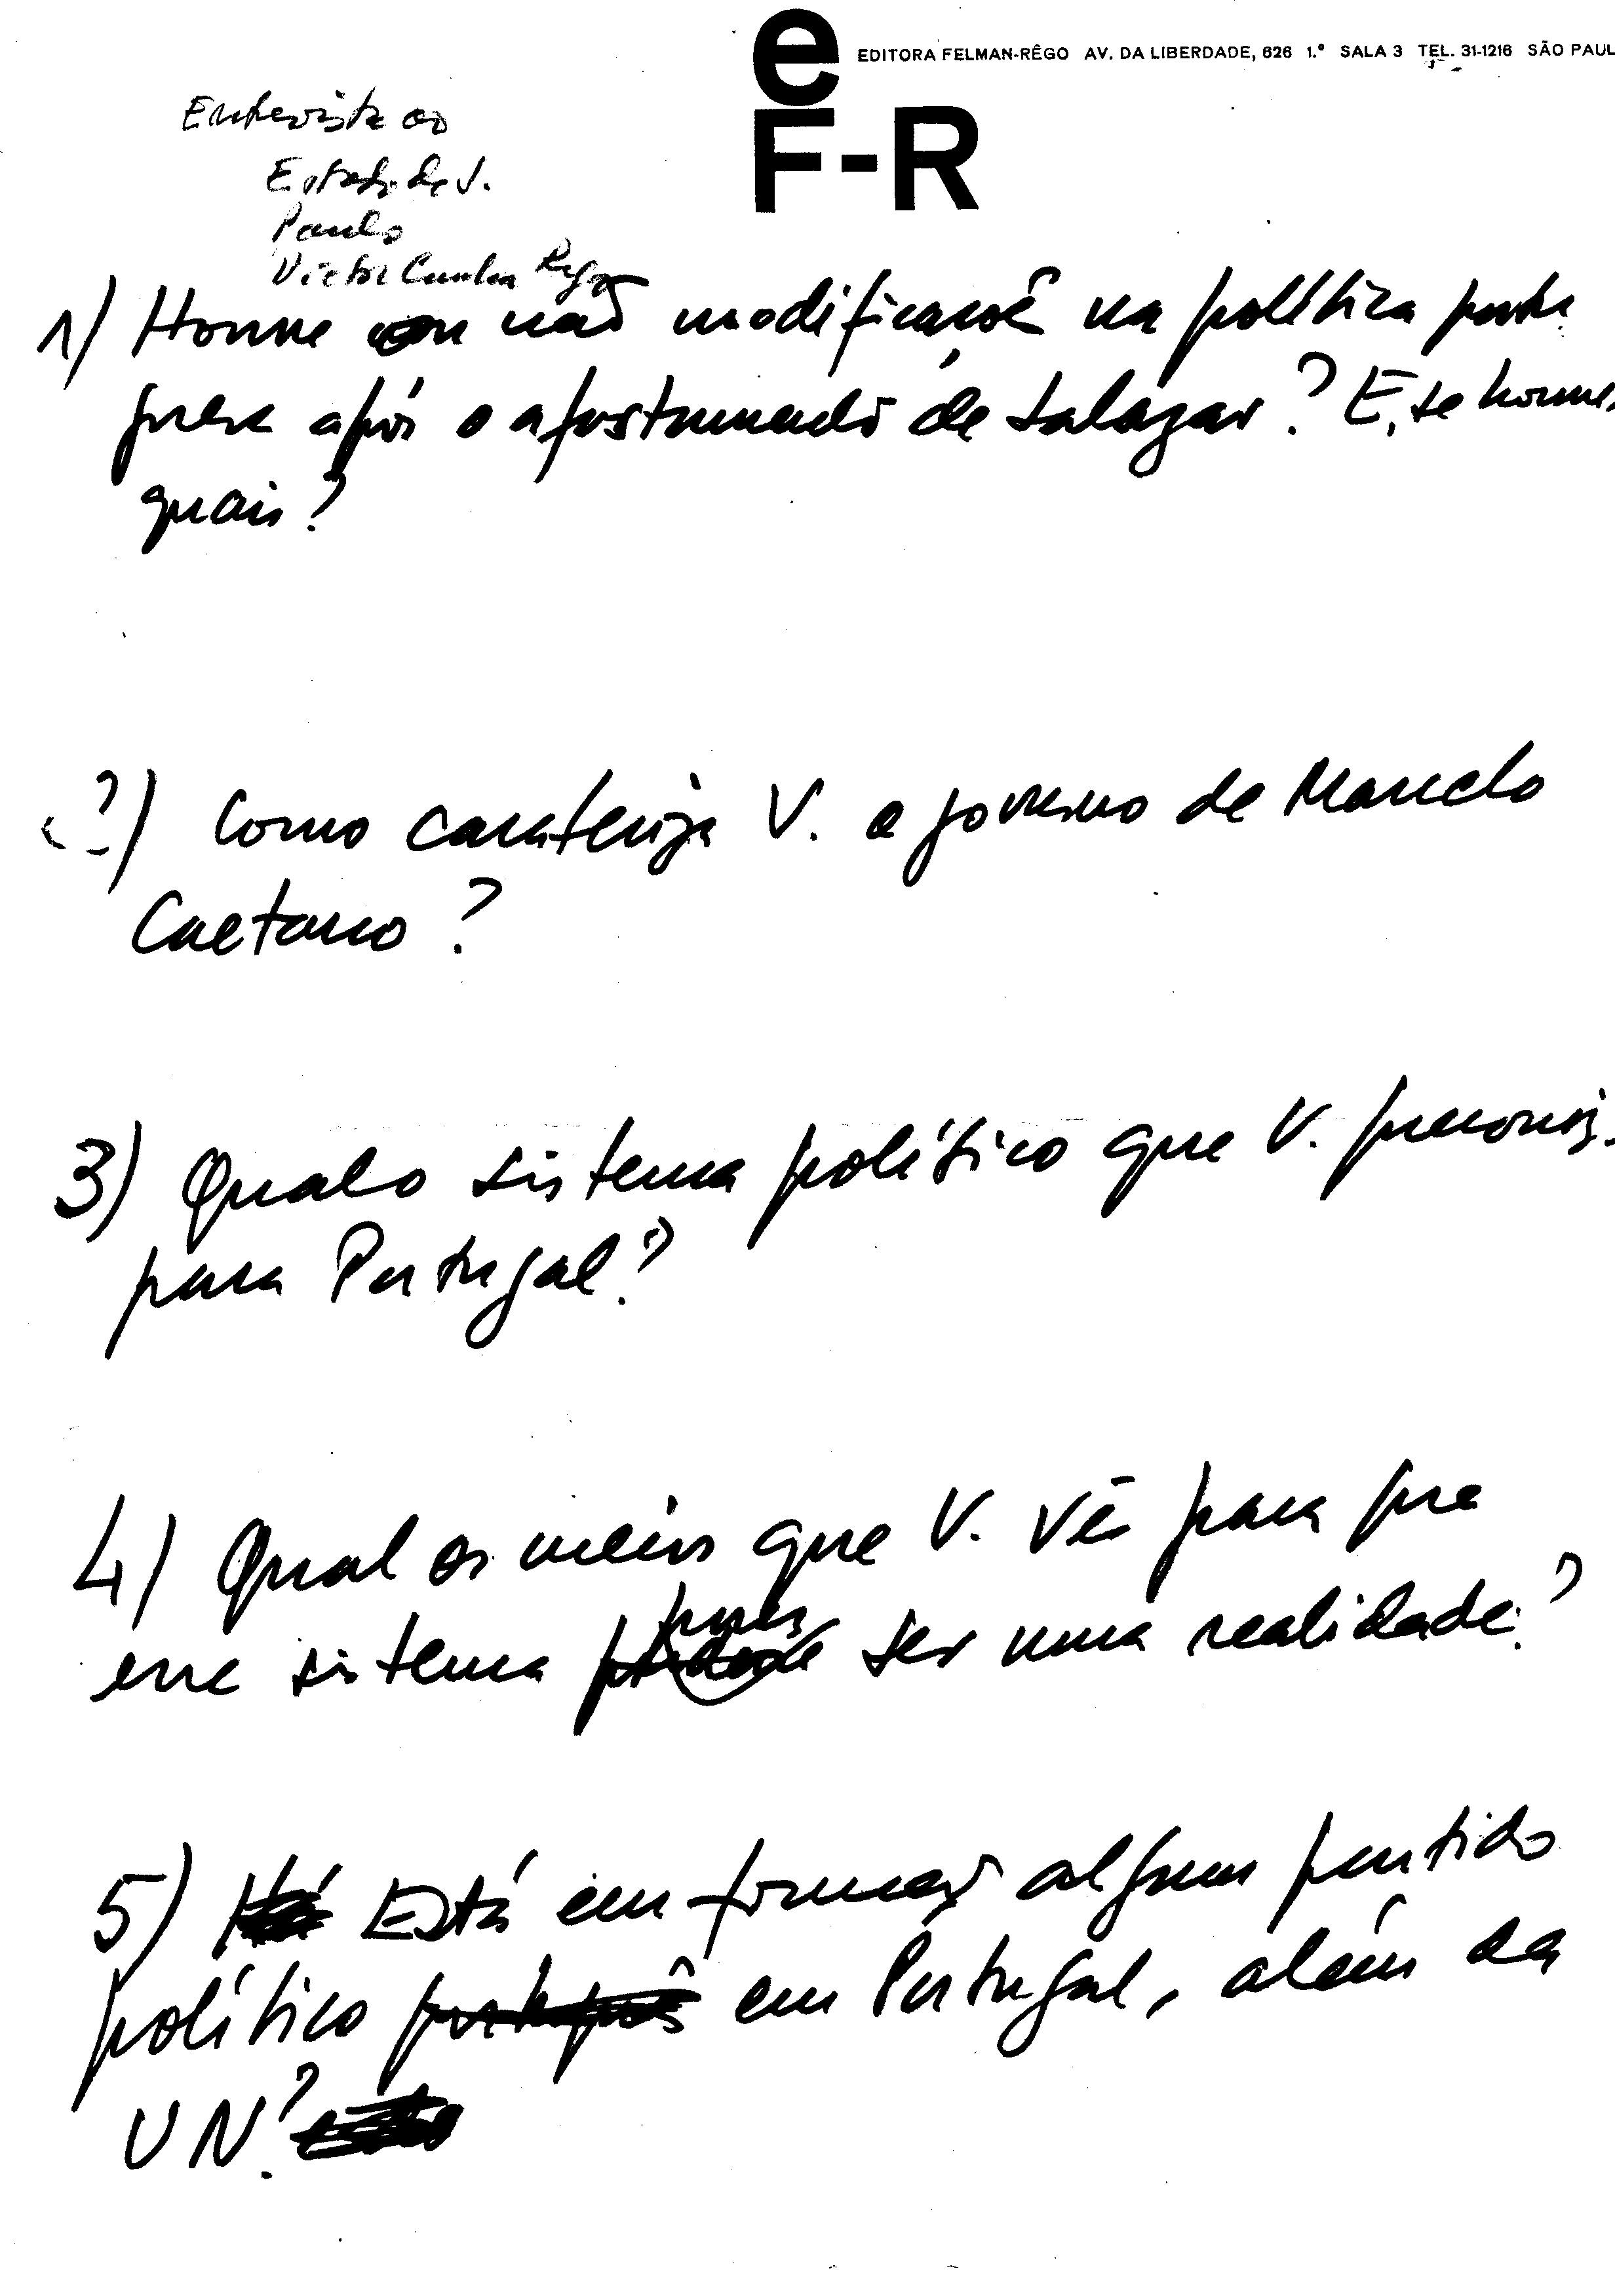 e
F-R
EDITORA FELMAN-RÊGO AV. DA LIBERDADE, 626 1.º SALA 3 TEL. 31-1216 SÃO PAUL
Entrevista ao
Estado de S.
Paulo
Victor Cunha Rego
1) Houve ou não modificaçoẽ na política portu
guesa após o apostamento de Salazar? E, se houve,
quais?
2) Como carateriza V. o governo de Marcelo
Caetano?
3) Qual o sistema político que V. preconiz.
para Portugal?
4) Qual os meios que V. vê para que
esse sistema possa ser uma realidade?
5) Há Está em formação algum partido
político português em Portugal, além da
UN?